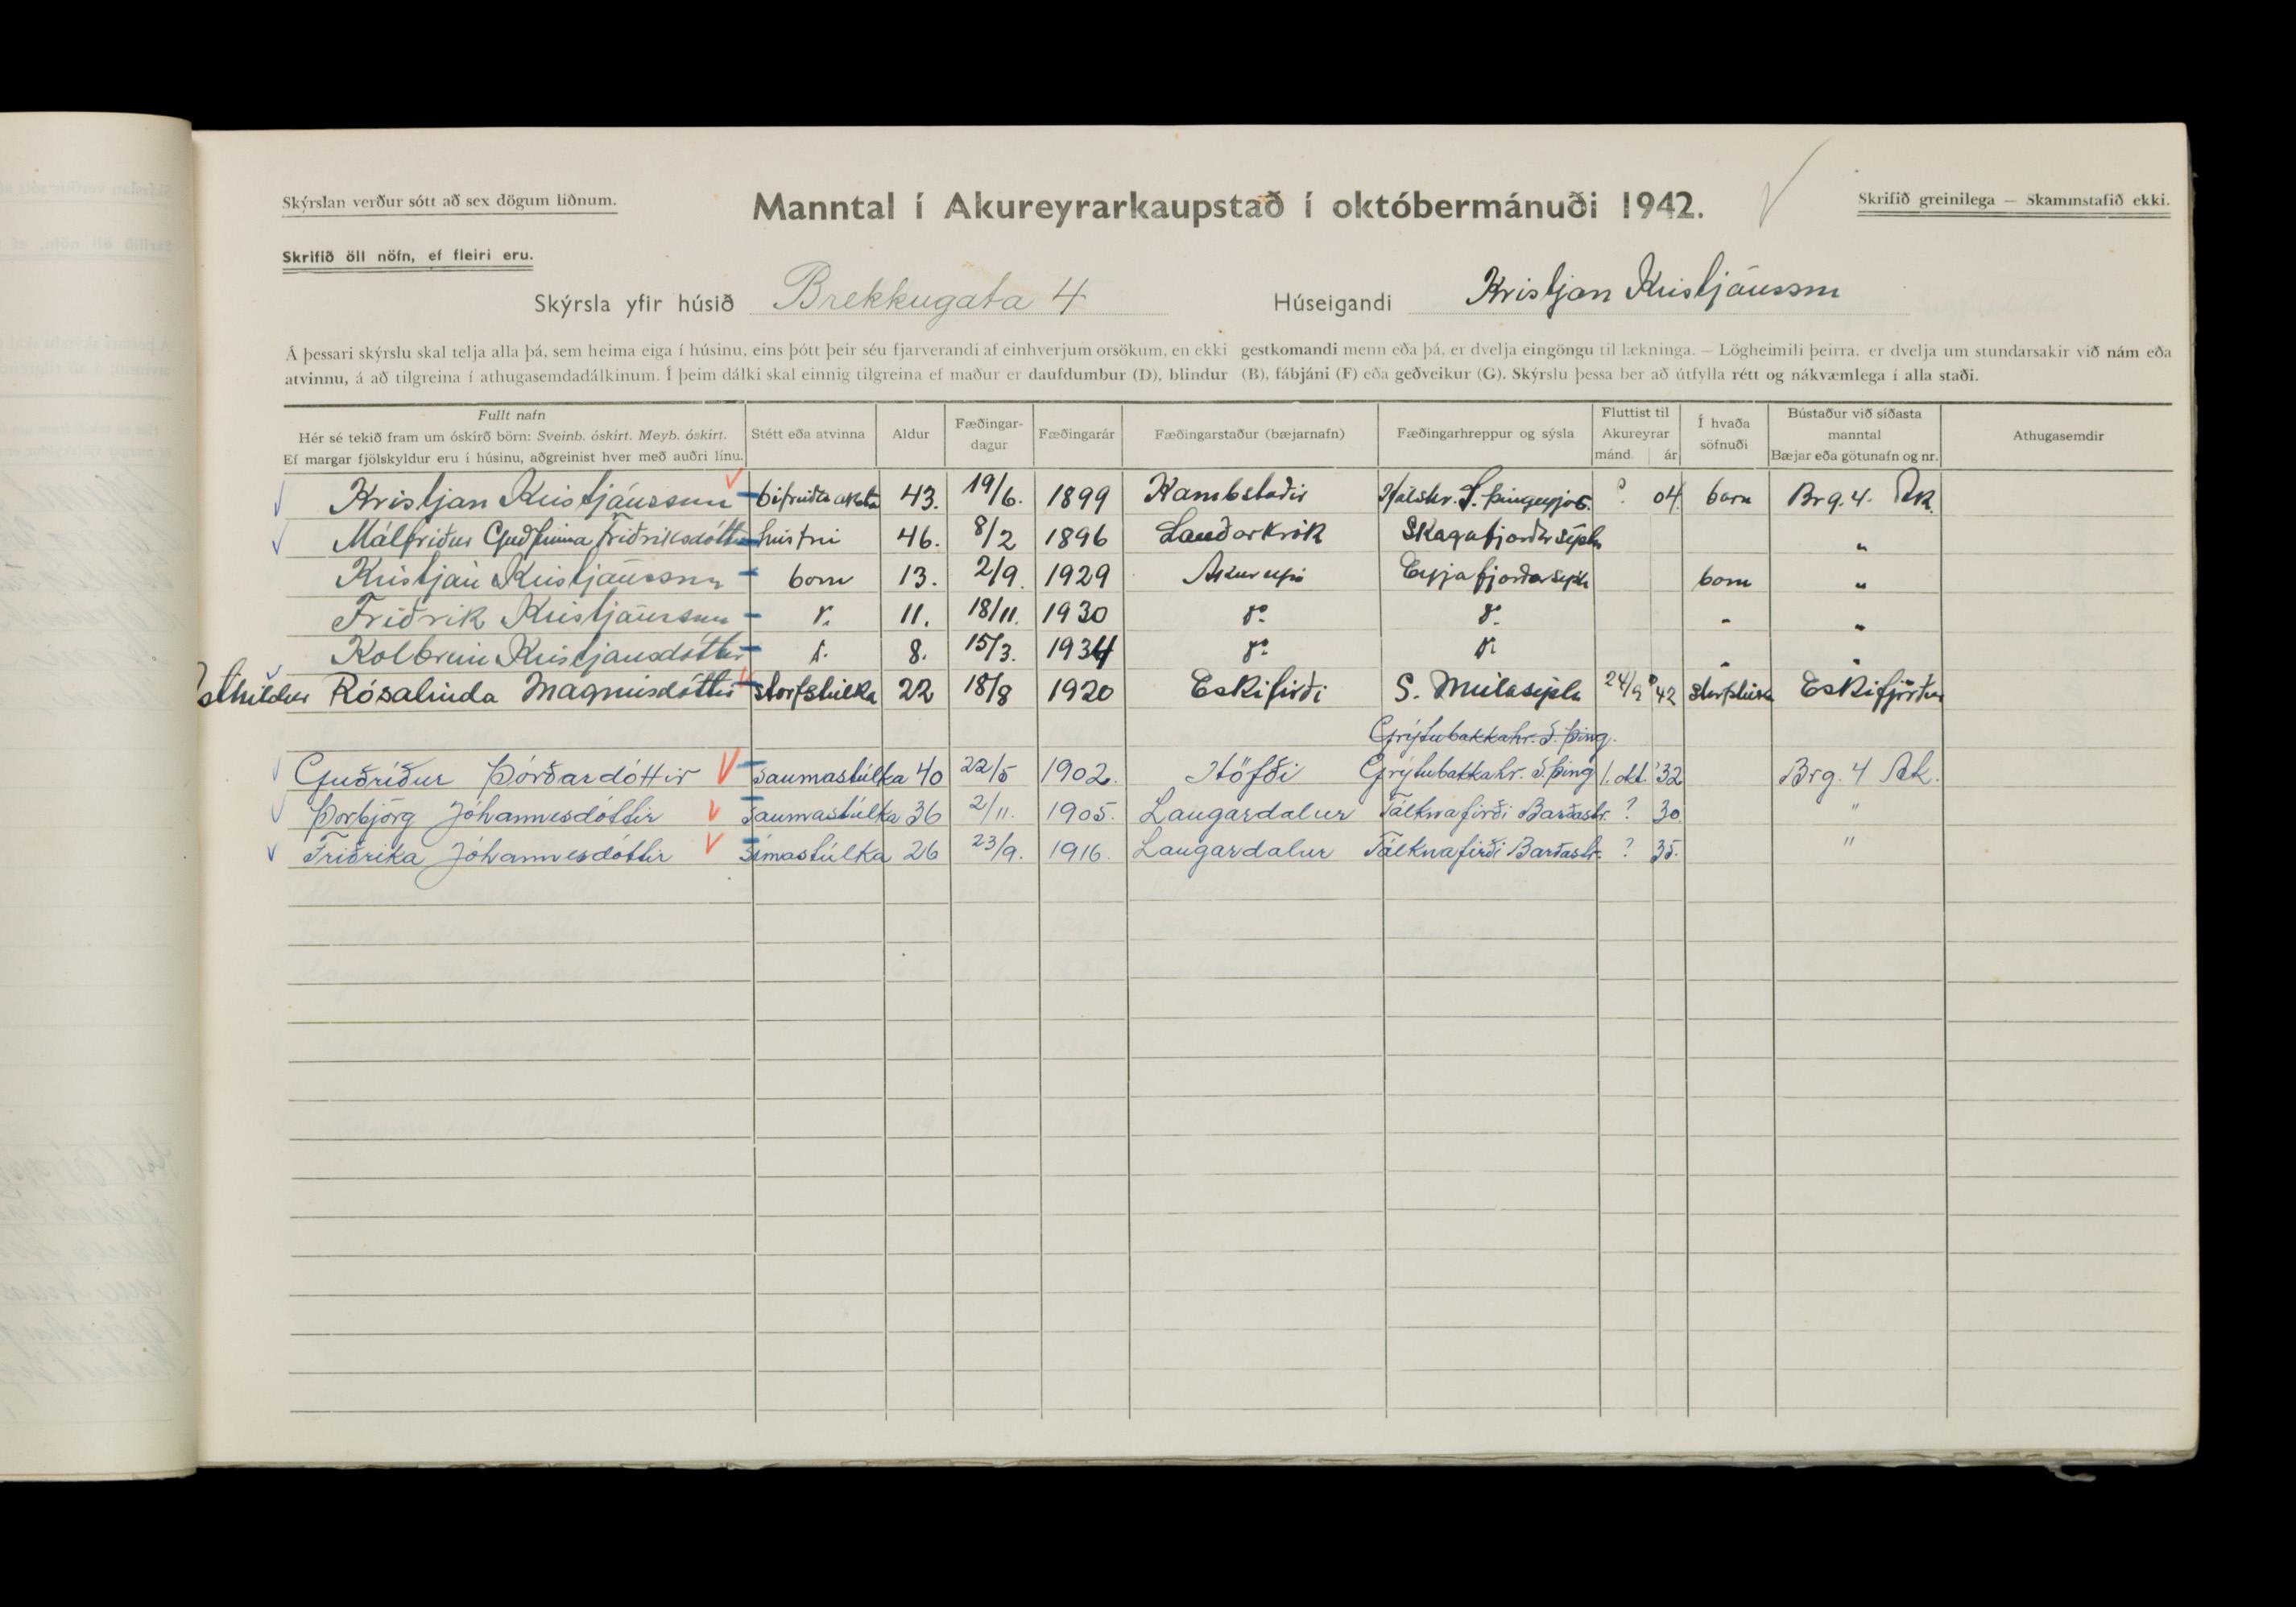 Skýrslan verður sótt að sex dögum liðnum.
Manntal í Akureyrarkaupstað í októbermánuði 1942.
Skrifið greinilega — Skammstafið ekki.
Skrifið öll nöfn, ef fleiri eru.
Skýrsla yfir húsið Brekkugata 4 Húseigandi Kristjan Kristjánsson
Á þessari skýrslu skal telja alla þá, sem heima eiga í húsinu, eins þótt þeir séu fjarverandi af einhverjum orsökum, en ekki gestkomandi menn eða þá, er dvelja eingöngu til lækninga. — Lögheimili þeirra, er dvelja um stundarsakir við nám eða
atvinnu, á að tilgreina í athugasemdadálkinum. Í þeim dálki skal einnig tilgreina ef maður er daufdumbur (D), blindur (B), fábjáni (F) eða geðveikur (G). Skýrslu þessa ber að útfylla rétt og nákvæmlega í alla staði.
Fullt nafn
Hér sé tekið fram um óskírð börn: Sveinb. óskírt. Meyb. óskírt.
Ef margar fjölskyldur eru í húsinu, aðgreinist hver með auðri línu.
Stétt eða atvinna
Aldur
Fæðingar-
dagur
Fæðingarár
Fæðingarstaður (bæjarnafn)
Fæðingarhreppur og sýsla
Fluttist til
Akureyrar
mánd. ár
Í hvaða
söfnuði
Bústaður við síðasta
manntal
Bæjar eða götunafn og nr.
Athugasemdir
Kristjan Kristjánsson 43. 19/6. 1899 Kambstaðir Hálshr. S. Þingeyjars. ? 04 Brg. 4. Ak.
Málfriður Guðfinna Friðriksdóttir húsfrú 46. 8/2 1896 Sauðarkrók Skagafjorðarsýsla "
Kristjan Kristjánsson born 13. 2/9. 1929 Akureyri Eyjafjorðarsýsla born "
Friðrik Kristjánsson 11. 18/11. 1930 " "
Kolbrún Kristjansdóttir 8. 15/3. 1934 " "
Rósalinda Magnúsdóttir starfstúlka 22 18/8 1920 Eskifirði S. Múlasýsla 24/9 42 starfstúlka Eskifjörður
Grýtubakkahr. S. Þing.
Guðríður Þórðardóttir saumastúlka 40 22/5 1902. Höfði Grýtubakkahr. S. Þing 1. okt. '32 Brg. 4 Ak.
Þorbjörg Jóhannesdóttir saumastúlka 36 2/11. 1905. Laugardalur Tálknafirði Barðastr. ? 30 "
Friðrika Jóhannesdóttir símastúlka 26 23/9. 1916. Laugardalur Tálknafirði Barðastr. ? 35. "